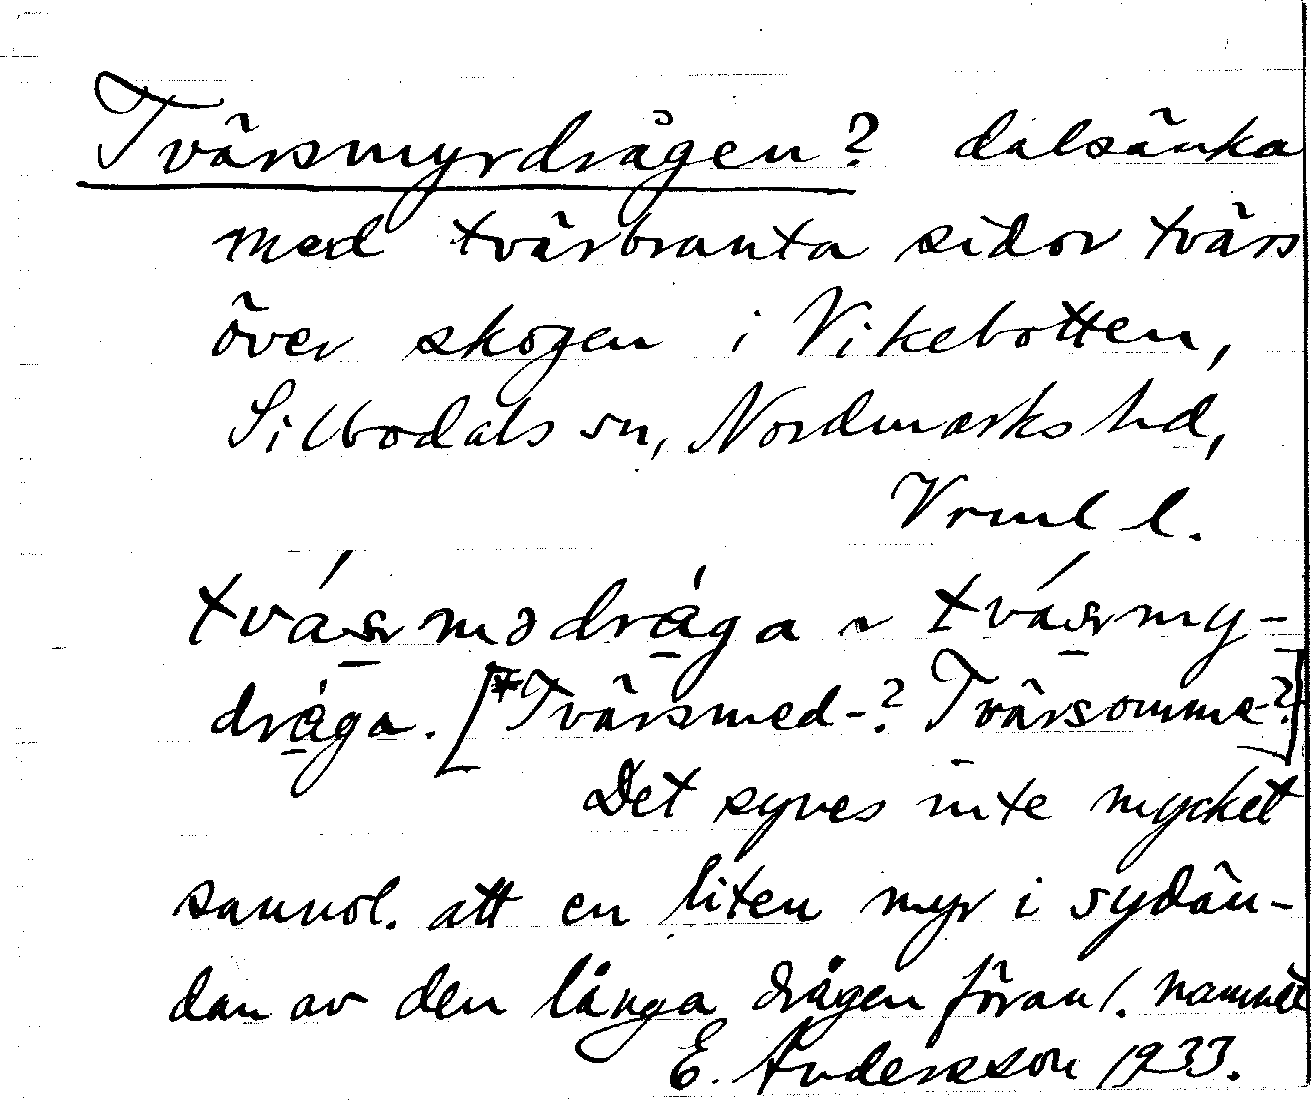 Tvärsmyrdrågen? dalsänka
med tvärbranta sidor tvärs
över skogen i Vikebotten,
Silbodals sn, Nordmarks hd,
Vrml l.
tvásrmədråga ~ tvásrmy-
dråga. [*Tvärsmed-? Tvärsomme-?]
Det synes inte mycket
sannol. att en liten myr i sydän-
dan av den långa drågen föranl. namnet
E. Andersson 1933.